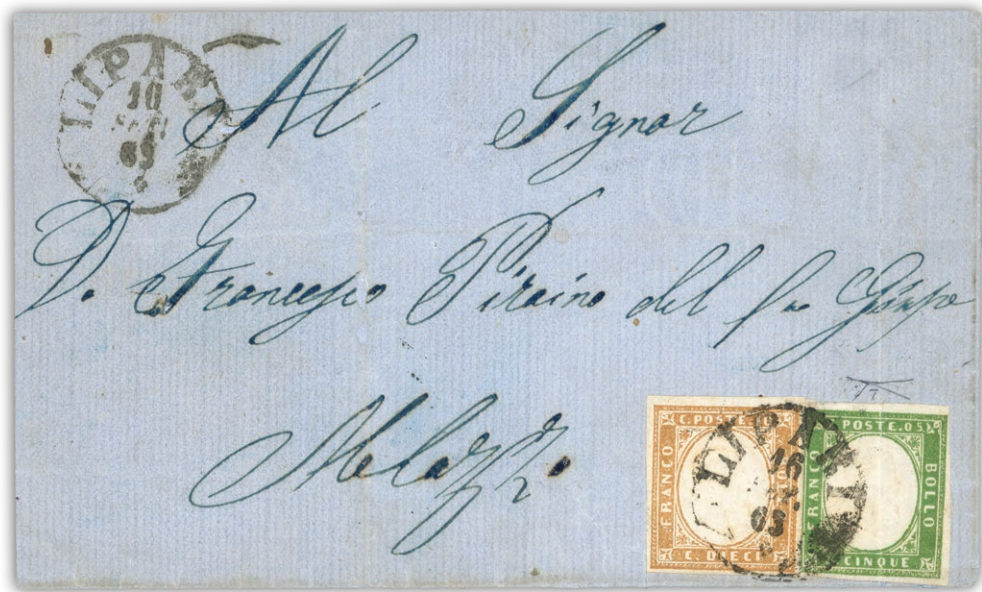 LIPARI
16
63
Al Signor
D. Francesco Piraino del fu Giuspe
Melazzo
C. POSTE. 10
FRANCO
C. DIECI
LIPARI
16
63
C. POSTE. 05
FRANCO
BOLLO
C. CINQUE